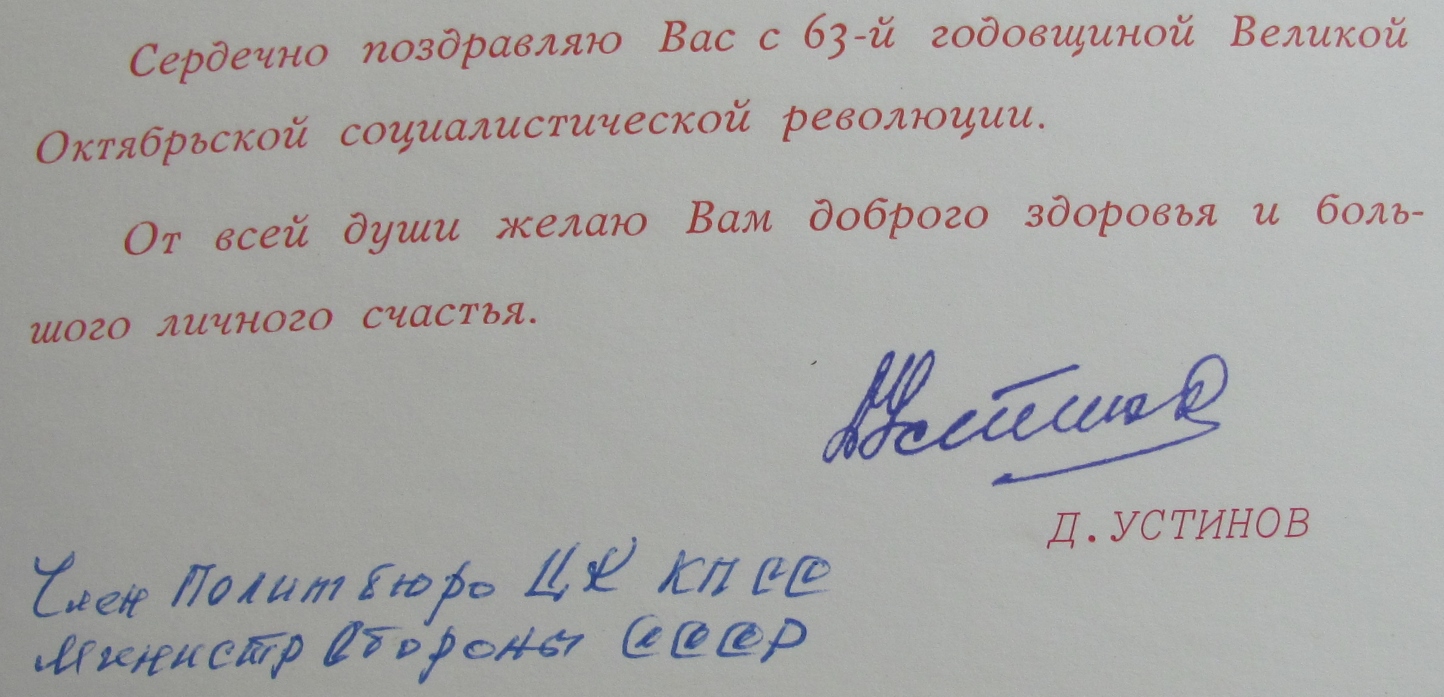 Сердечно поздравляю Вас с 63-й годовщиной Великой
Октябрьской социалистической революции.
От всей души желаю Вам доброго здоровья и боль-
шого личного счастья.
Д Устинов
Д. УСТИНОВ
Член Политбюро ЦК КПСС
Министр Обороны СССР